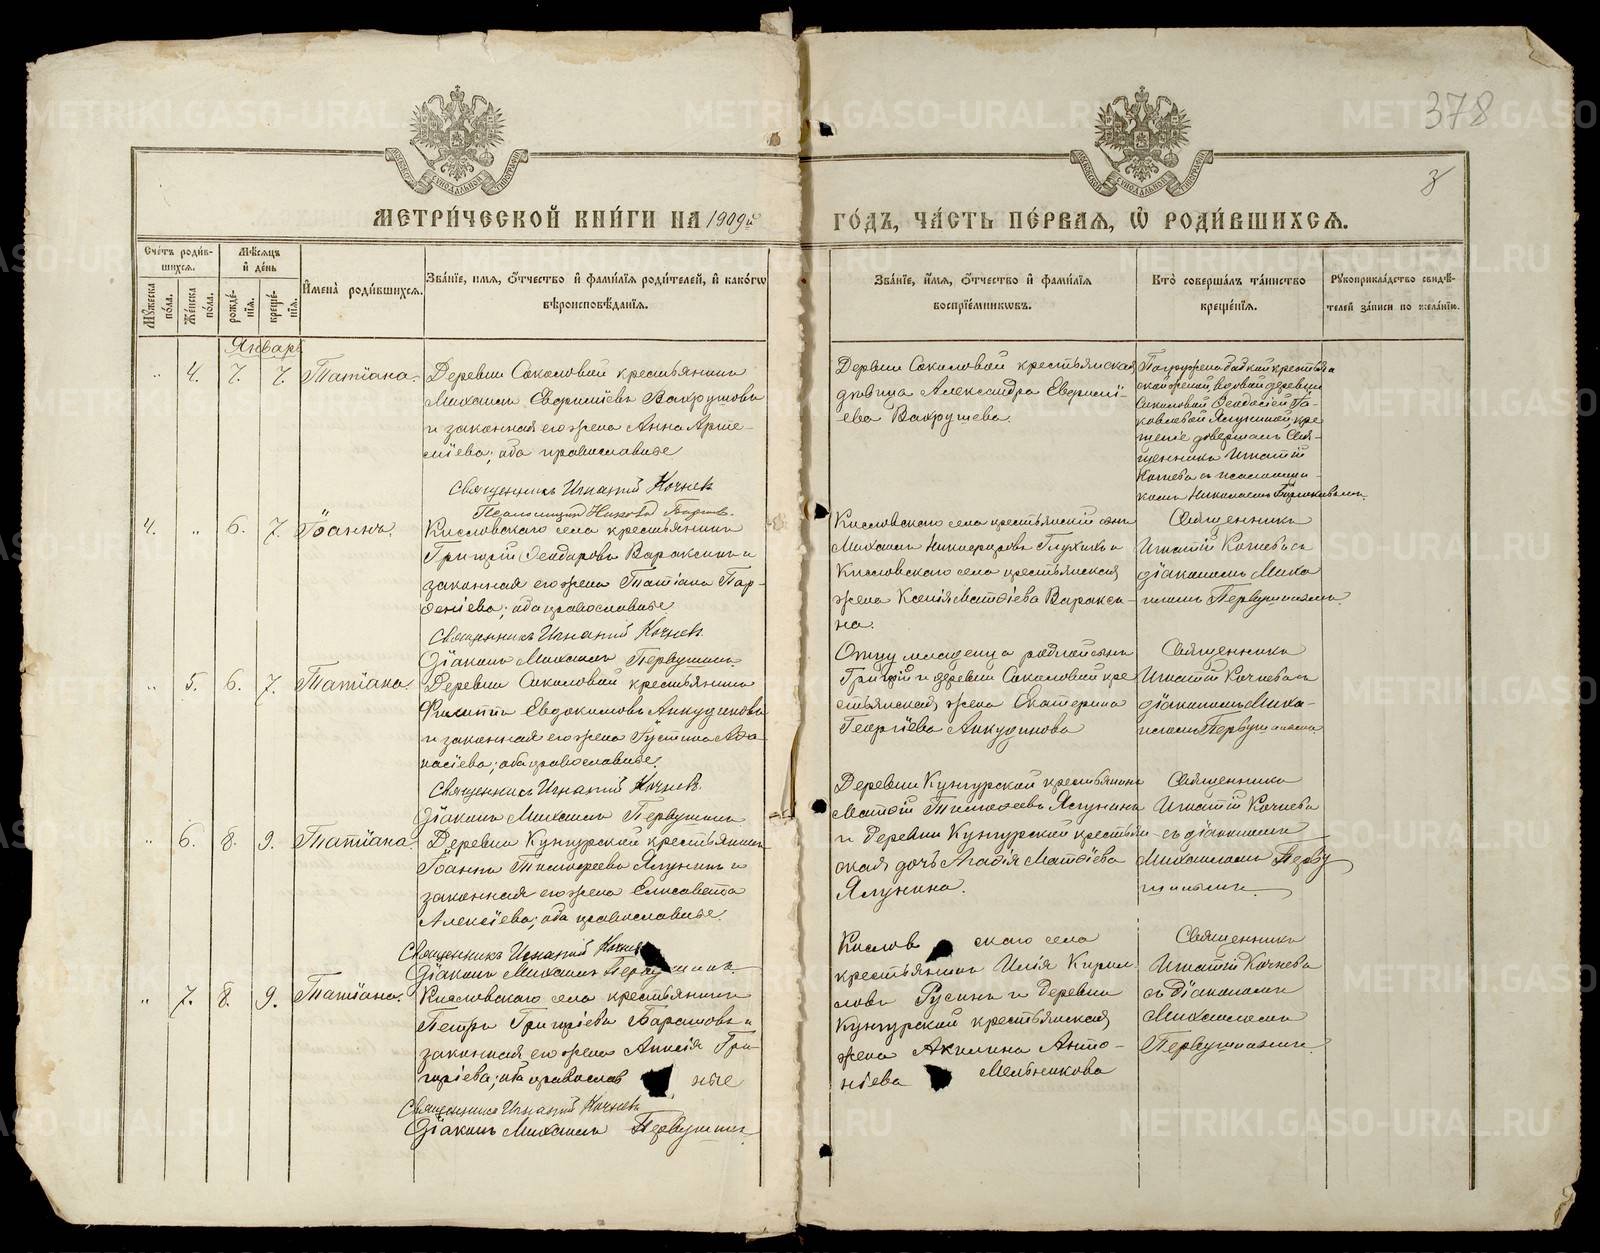 378
3
МЕТРИ́ЧЕСКОЙ КНИ́ГИ НА 1909й ГО́ДЪ, ЧА́СТЬ ПЕ́РВАЯ, Ѡ РОДИ́ВШИХСЯ.
Сче́тъ роди́в-
шихся.
Му́жеска по́ла.
Же́нска по́ла.
Мѣ́сяцъ
и́ де́нь
рожде́-
нїя.
креще́-
нїя.
И҆мена̀ роди́вшихся.
Зва́нїе, имя, о҆́тчество и҆ фами́лїя роди́телей, и҆ како́гѡ
вѣроисповѣ́данїя.
Зва́нїе, и҆́мя, о҆́тчество и҆ фами́лїя
воспрїе́мникѡвъ.
Кто̀ соверша́лъ та́инство
креще́нїя.
Рꙋкоприкла́дство свидѣ́-
телей за́писи по жела́нїю.
Январь
" 4. 7. 7. Татіана.
Деревни Соколовой крестьянинъ
Михаилъ Евфиміевъ Вахрушевъ
и законная его жена Анна Арте-
міева; оба православные
Священникъ Игнатій Кочневъ
Деревни Соколовой крестьянская
дѣвица Александра Евфимі-
ева Вахрушева.
Погружена бабкой крестьян
ской женой, вдовой деревни
Соколовой Ѳеодосіей Яковлевой Ялуниной, кре
щеніе довершалъ Свя-
щенникъ Игнатій
Кочневъ съ псаломщи-
комъ Николаемъ
4. " 6. 7. Іоаннъ.
Кисловскаго села крестьянинъ
Григорій Ѳеодоровъ Вараксинъ и
законная его жена Татіана Пар-
ѳеніева; оба православные
Священникъ Игнатій Кочневъ.
Діаконъ Михаилъ Первушинъ.
Кисловскаго села крестьянскій сынъ
Михаилъ Никифоровъ Глухихъ и
Кисловскаго села крестьянская
жена Ксенія Матѳіева Вараксина.
Священникъ
Игнатій Кочневъ съ
діакономъ Миха
иломъ Первушинымъ
" 5. 6. 7. Татіана.
Деревни Соколовой крестьянинъ
Филиппъ Евдокимовъ Анкудиновъ
и законная его жена Іустина Аѳа-
насіева; оба православные.
Священникъ Игнатій Кочневъ.
Діаконъ Михаилъ Первушинъ
Отцу младенца родной сынъ
Григорій и деревни Соколовой кре
стьянская жена Екатерина
Георгіева Анкудинова
Священникъ
Игнатій Кочневъ съ
діакономъ Миха-
иломъ Первушинымъ
" 6. 8. 9. Татіана
Деревни Кунгурской крестьянинъ
Іоаннъ Тимофеевъ Ялунинъ и
законная его жена Елисавета
Алексіева; оба православные.
Священникъ Игнатій Кочневъ
Діаконъ Михаилъ Первушинъ.
Деревни Кунгурской крестьянинъ
Матѳій Тимофеевъ Ялунинъ
и деревни Кунгурской крестьян
ская дочь Агафія Матѳіева
Ялунина.
Священникъ
Игнатій Кочневъ
съ діакономъ
Михаиломъ Перву
шинымъ
" 7. 8. 9. Татіана.
Кисловскаго села крестьянинъ
Петръ Григорьевъ Барашовъ и
законная его жена Анисія Гри-
горіева; оба православ ные
Священникъ Игнатій Кочневъ
Діаконъ Михаилъ Первушинъ
Кислов скаго села
крестьянинъ Илія Кирил
ловъ Русинъ и деревни
Кунгурской крестьянская
жена Акилина Анто-
ніева Мельникова
Священникъ
Игнатій Кочневъ
съ Діакономъ
Михаиломъ
Первушинымъ
METRIKI.GASO-URAL.RU